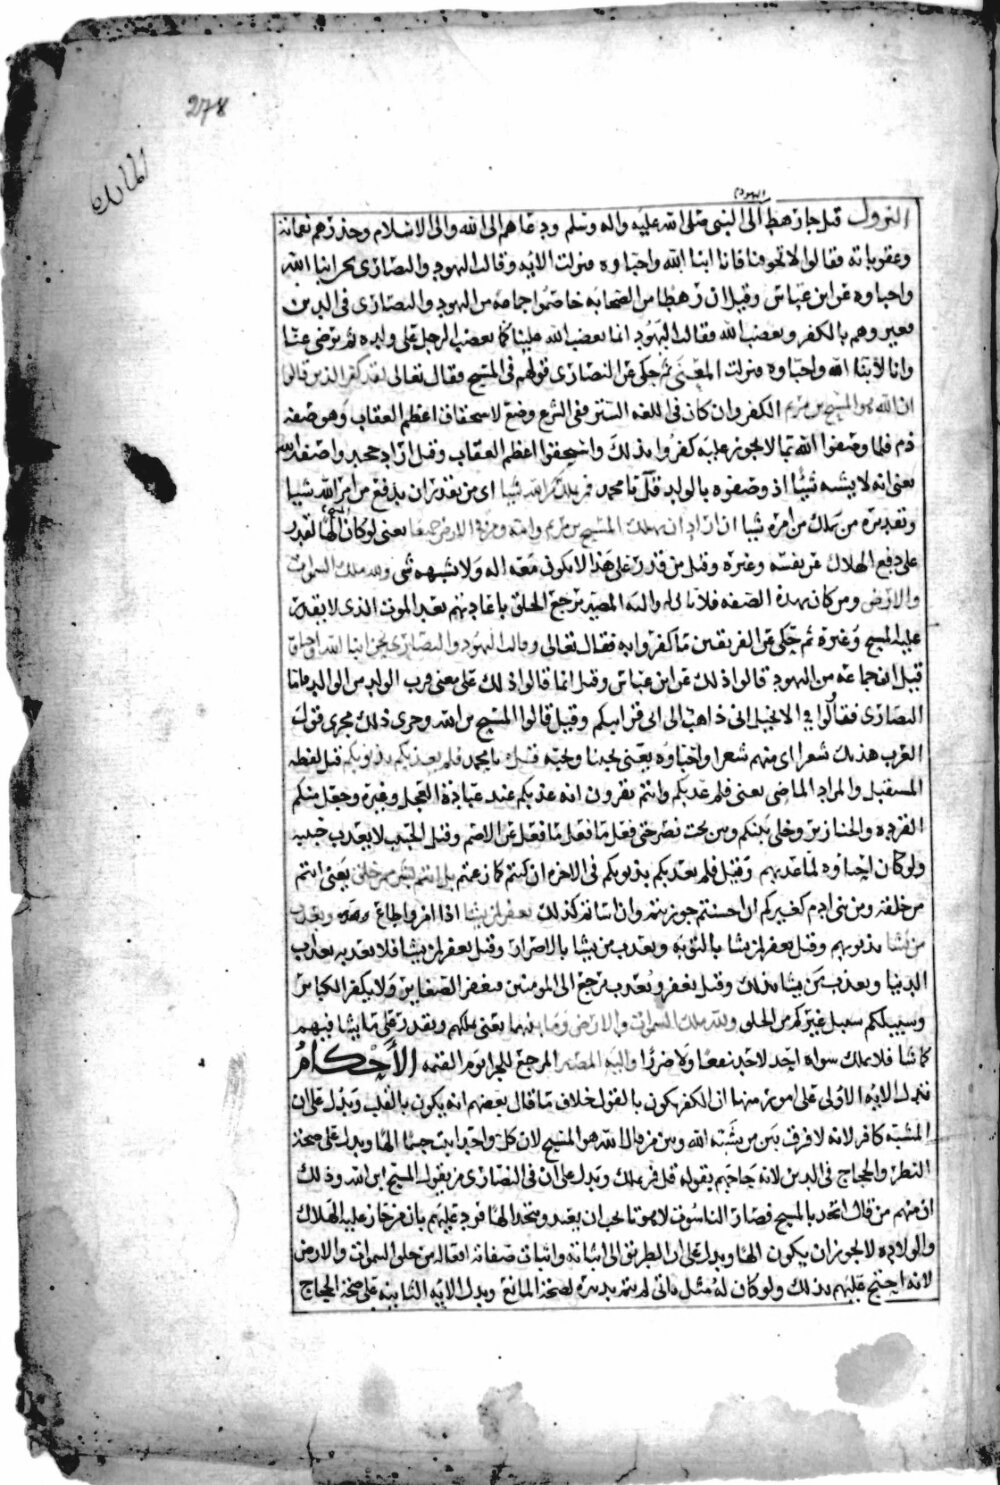 278
المائدة
اليهود
النزول قيل جاء رهط الى النبي صلى الله عليه واله وسلم ودعاهم الى الله والى الاسلام وحذرهم نقماته
وعقوباته فقالوا لا تخوفنا فانا ابنا الله واحباوه فنزلت الايه وقالت اليهود والنصارى نحن ابنا الله
واحباوه عن ابن عباس وقيل ان رهطا من الصحابه خاصموا جماعه من اليهود والنصارى في الدين
فعيروهم بالكفر وبغضب الله فقالت اليهود انما يغضب الله علينا كما يغضب الرجل على ولده ثم يرضى عنا
وانا لابنا الله واحباوه فنزلت المعنى ثم حكى عن النصارى قولهم في المسيح فقال تعالى لقد كفر الذين قالوا
ان الله هو المسيح بن مريم الكفر وان كان في اللغه الستر ففي الشرع وضع لاستحقاق اعظم العقاب وهو صفه
ذم فلما وصفوا الله بما لا يجوز عليه كفروا بذلك واستحقوا اعظم العقاب وقيل اراد جحدوا صفه الله
يعني انه لا يشبه شيئا اذ وصفوه بالولد قل يا محمد فمن يملك من الله شيا اي من يقدر ان يدفع من امر الله شيا
وتقديره من يملك من امره شيا ان اراد ان يهلك المسيح بن مريم وامه ومن في الارض جميعا يعني لو كان المسيح الها لقدر
على دفع الهلاك عن نفسه وغيره وقيل من قدر على هذا لا يكون معه اله ولا يشبهه شي ولله ملك السموات
والارض ومن كان بهذه الصفه فلا ثاني له واليه المصير مرجع الخلق باعادتهم بعد الموت الذي لا يقدر
عليه المسيح وغيره ثم حكى عن الفريقين ما كفروا به فقال تعالى وقالت اليهود والنصارى نحن ابنا الله واحباوه
قيل ان جماعه من اليهود قالوا ذلك عن ابن عباس وقيل انما قالوا ذلك على معنى قرب الولد من الوالد فاما
النصارى فقالوا في الانجيل اني ذاهب الى ابي وابيكم وقيل قالوا المسيح بن الله وجرى ذلك مجرى قول
العرب هذيل شعرا اي منهم شعرا واحباوه يعني يحبنا ونحبه قل يا محمد فلم يعذبكم بذنوبكم قيل لفظه
المستقبل والمراد الماضي يعني فلم عذبكم وانتم تقرون انه عذبكم عند عبادة العجل وغيره وجعل منكم
القرده والخنازير وخلى بينكم وبين بخت نصر حتى فعل ما فعل ما فعل عن الاصم وقيل الحبيب لا يعذب حبيبه
ولو كان احباوه لما عذبهم وقيل فلم يعذبكم بذنوبكم في الاخره ان كنتم كما زعمتم بل انتم بشر ممن خلق يعني انتم
من خلقه ومن بني ادم كغيركم ان احسنتم جوزيتم وان اساتم كذلك يغفر لمن يشا اذا امن واطاع ويعذب
من يشا بذنوبهم وقيل يغفر لمن يشا بالتوبه ويعذب من يشا بالاصرار وقيل يغفر لمن يشا فلا يعذبه بعذاب
الدنيا ويعذب من يشا بذلك وقيل يغفر ويعذب يرجع الى المومنين فيغفر الصغاير ولا يكفر الكباير
وسبيلكم سبيل غيركم من الخلق ولله ملك السموات والارض وما بينهما يعني يملكهم ويقدر على ما يشا فيهم
كما شا فلا يملك سواه احد لاحد نفعا ولا ضرا واليه المصير المرجع للجزا يوم القيمه الأحكام
تدل الايه الاولى على امور منها ان الكفر يكون بالقول خلاف ما قال بعضهم انه يكون بالقلب ويدل على ان
المشبه كافر لانه لا فرق بين من يشبه الله وبين من قال الله هو المسيح لان كل واحد اثبت جسما الها ويدل على صحة
النظر والحجاج في الدين لانه حاجهم بقوله قل فمن يملك ويدل على ان في النصارى من يقول المسيح ابن الله وذلك
ان منهم من قال اتحد بالمسيح فصار الناسوت لاهوتا يجب ان يعبد ويتخذ الها فرد عليهم بان من جاز عليه الهلاك
والولاده لا يجوز ان يكون الها ويدل على ان الطريق الى اثباته واثبات صفاته افعاله من خلق السموات والارض
لانه احتج عليهم بذلك ولو كان له مثل ثاني لم يتم تدبيره لصحة المانع ويدل الايه الثانيه على صحة الحجاج